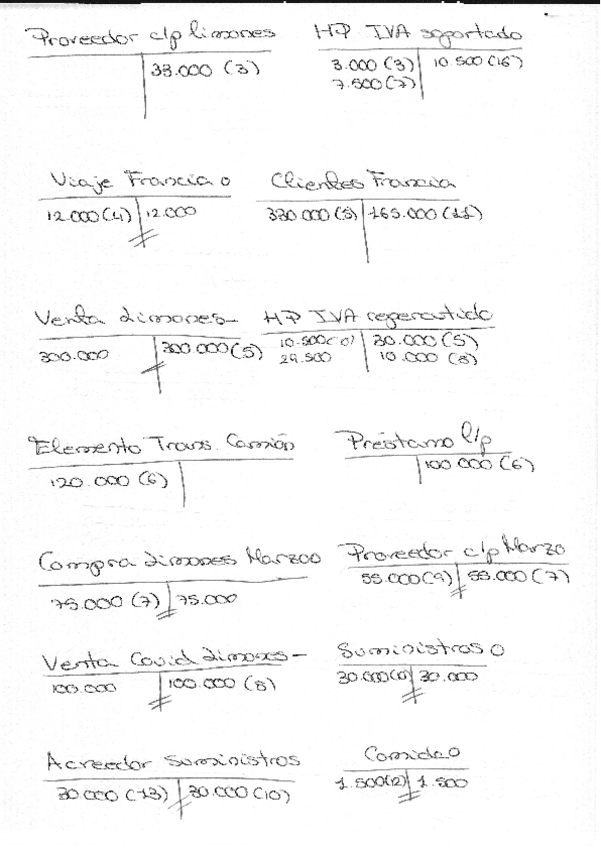 Proveedor c/p limones
HP IVA soportado
33.000 (3)
3.000 (3) 10.500 (16)
7.500 (7)
Viaje Francia
Clientes Francia
12.000 (4) 12.000
330.000 (5) 165.000 (11)
Venta Limones
HP IVA repercutido
300.000 300.000 (5)
10.500 30.000 (5)
29.500 10.000 (8)
Elemento Trans. Camión
Préstamo l/p
120.000 (6)
100.000 (6)
Compra Limones Marzo
Proveedor c/p Marzo
75.000 (7) 75.000
55.000 (9) 55.000 (7)
Venta Covid Limones
Suministros
100.000 100.000 (8)
30.000 (10) 30.000
Acreedor Suministros
Comida
30.000 (13) 30.000 (10)
1.500 (2) 1.500